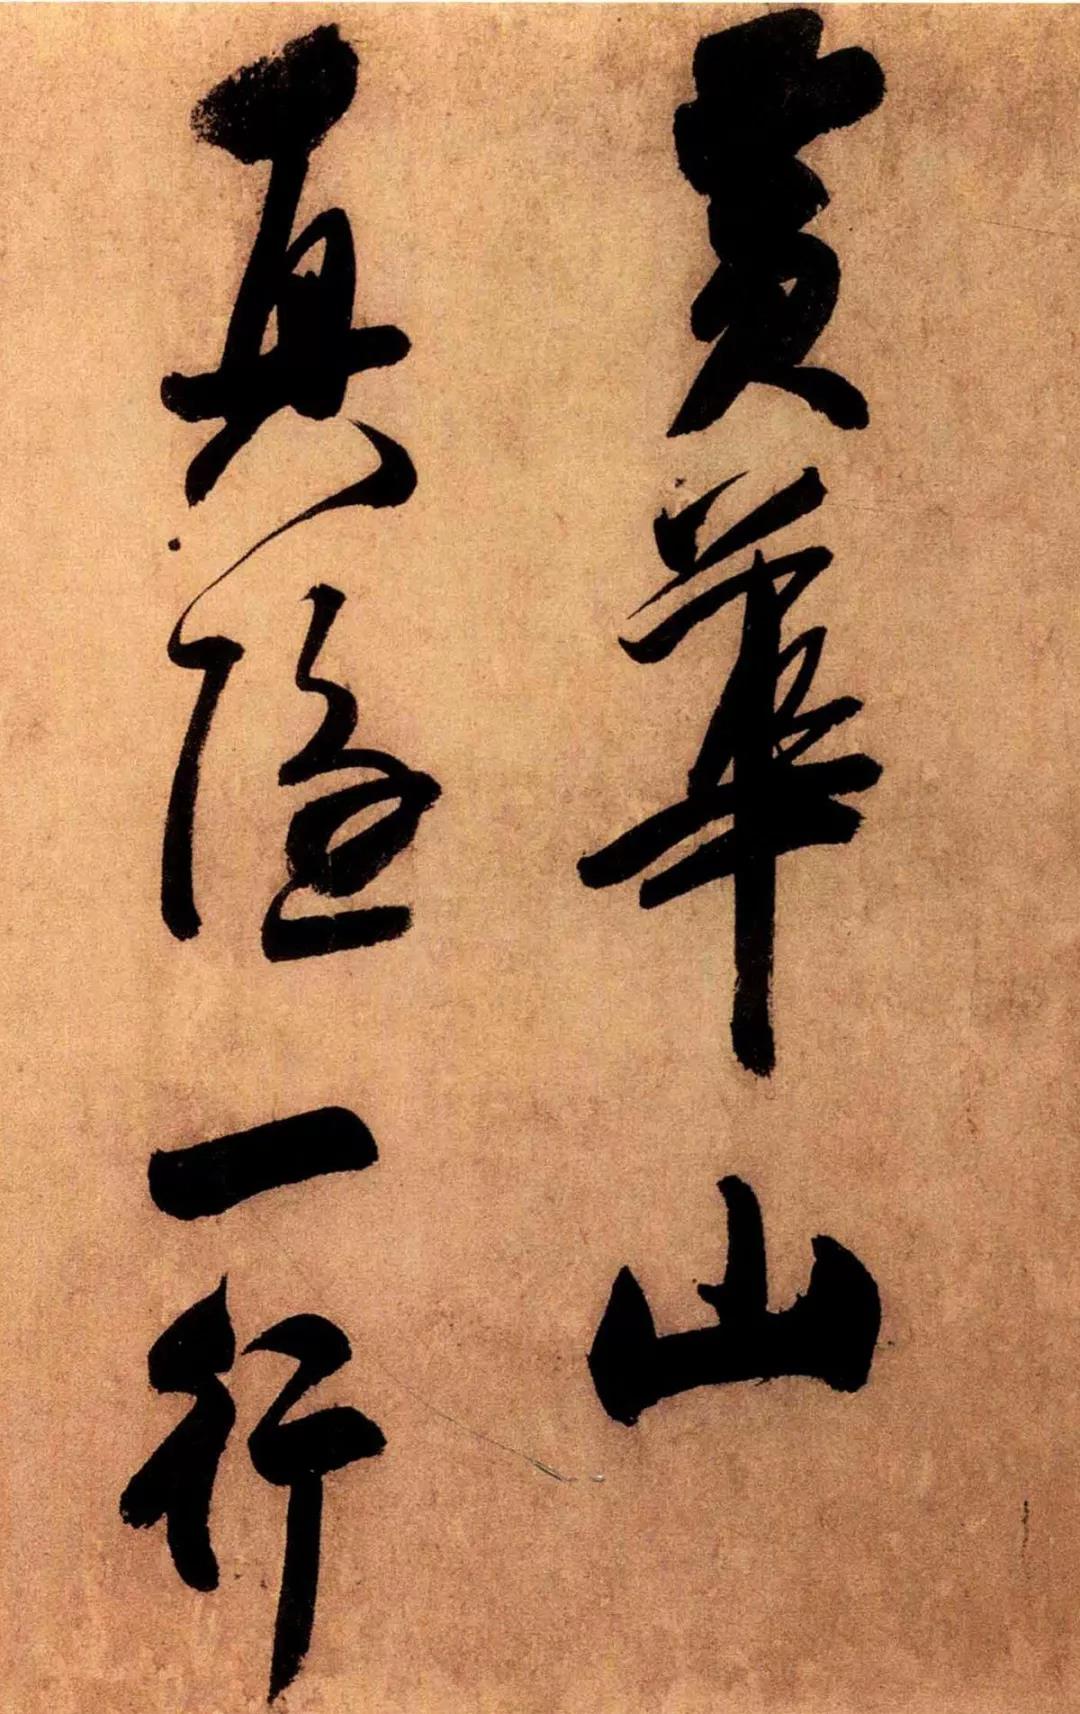 黄華山
真隐一行